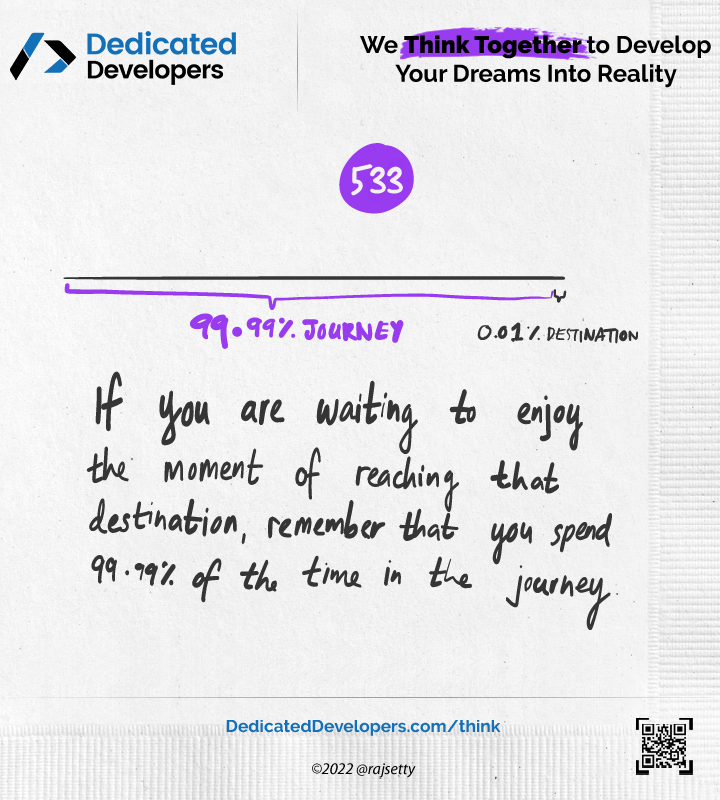 Dedicated
Developers
We Think Together to Develop
Your Dreams Into Reality
533
99.99% JOURNEY
0.01% DESTINATION
If you are waiting to enjoy
the moment of reaching that
destination, remember that you spend
99.99% of the time in the journey
DedicatedDevelopers.com/think
©2022 @rajsetty